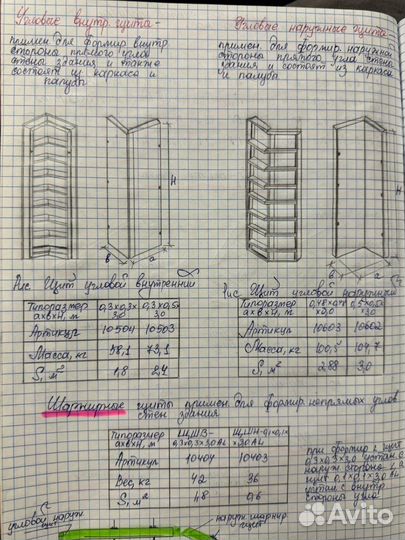 Угловые внутр. щита -
примен. для формир. внутр
стороны прямого угла
стена здания и также
состоят из каркаса и
палубы
Угловые наружные щита -
примен. для формир. наружной
стороны прямого угла стена
здания и состоят из каркаса
и палубы
H
в
a
H
в
a
Рис. Щит угловой внутренний
Типоразмер
aхвхH, м
0,3х0,3х
3.0
0,3х0,5х
3.0
Артикул
10504
10503
Масса, кг
58,1
73,1
S, м²
1,8
2,4
Рис. Щит угловой наружный
Типоразмер
aхвхH, м
х3,0
х3.0
Артикул
10603
10602
Масса, кг
100,5
104,7
S, м²
2.88
3,0
Шарнирные щиты примен. для формир. непрямых углов
стен здания
Типоразмер
aхвхH, м
ЩМВ-
0,3х0,3х3.0 AL
ЩМН-0,1х0,1х
х3.0 AL
Артикул
10404
10403
Вес, кг
42
36
S, м²
1,8
0,6
при формир. щит
0,3х0,3х3.0 устан. с
наруж. стороны, а
щит 0,1х0,1х3.0 AL
устан. с внутр
стороны угла
угловой наруж
щит
наруж. шарнир
щит
Avito